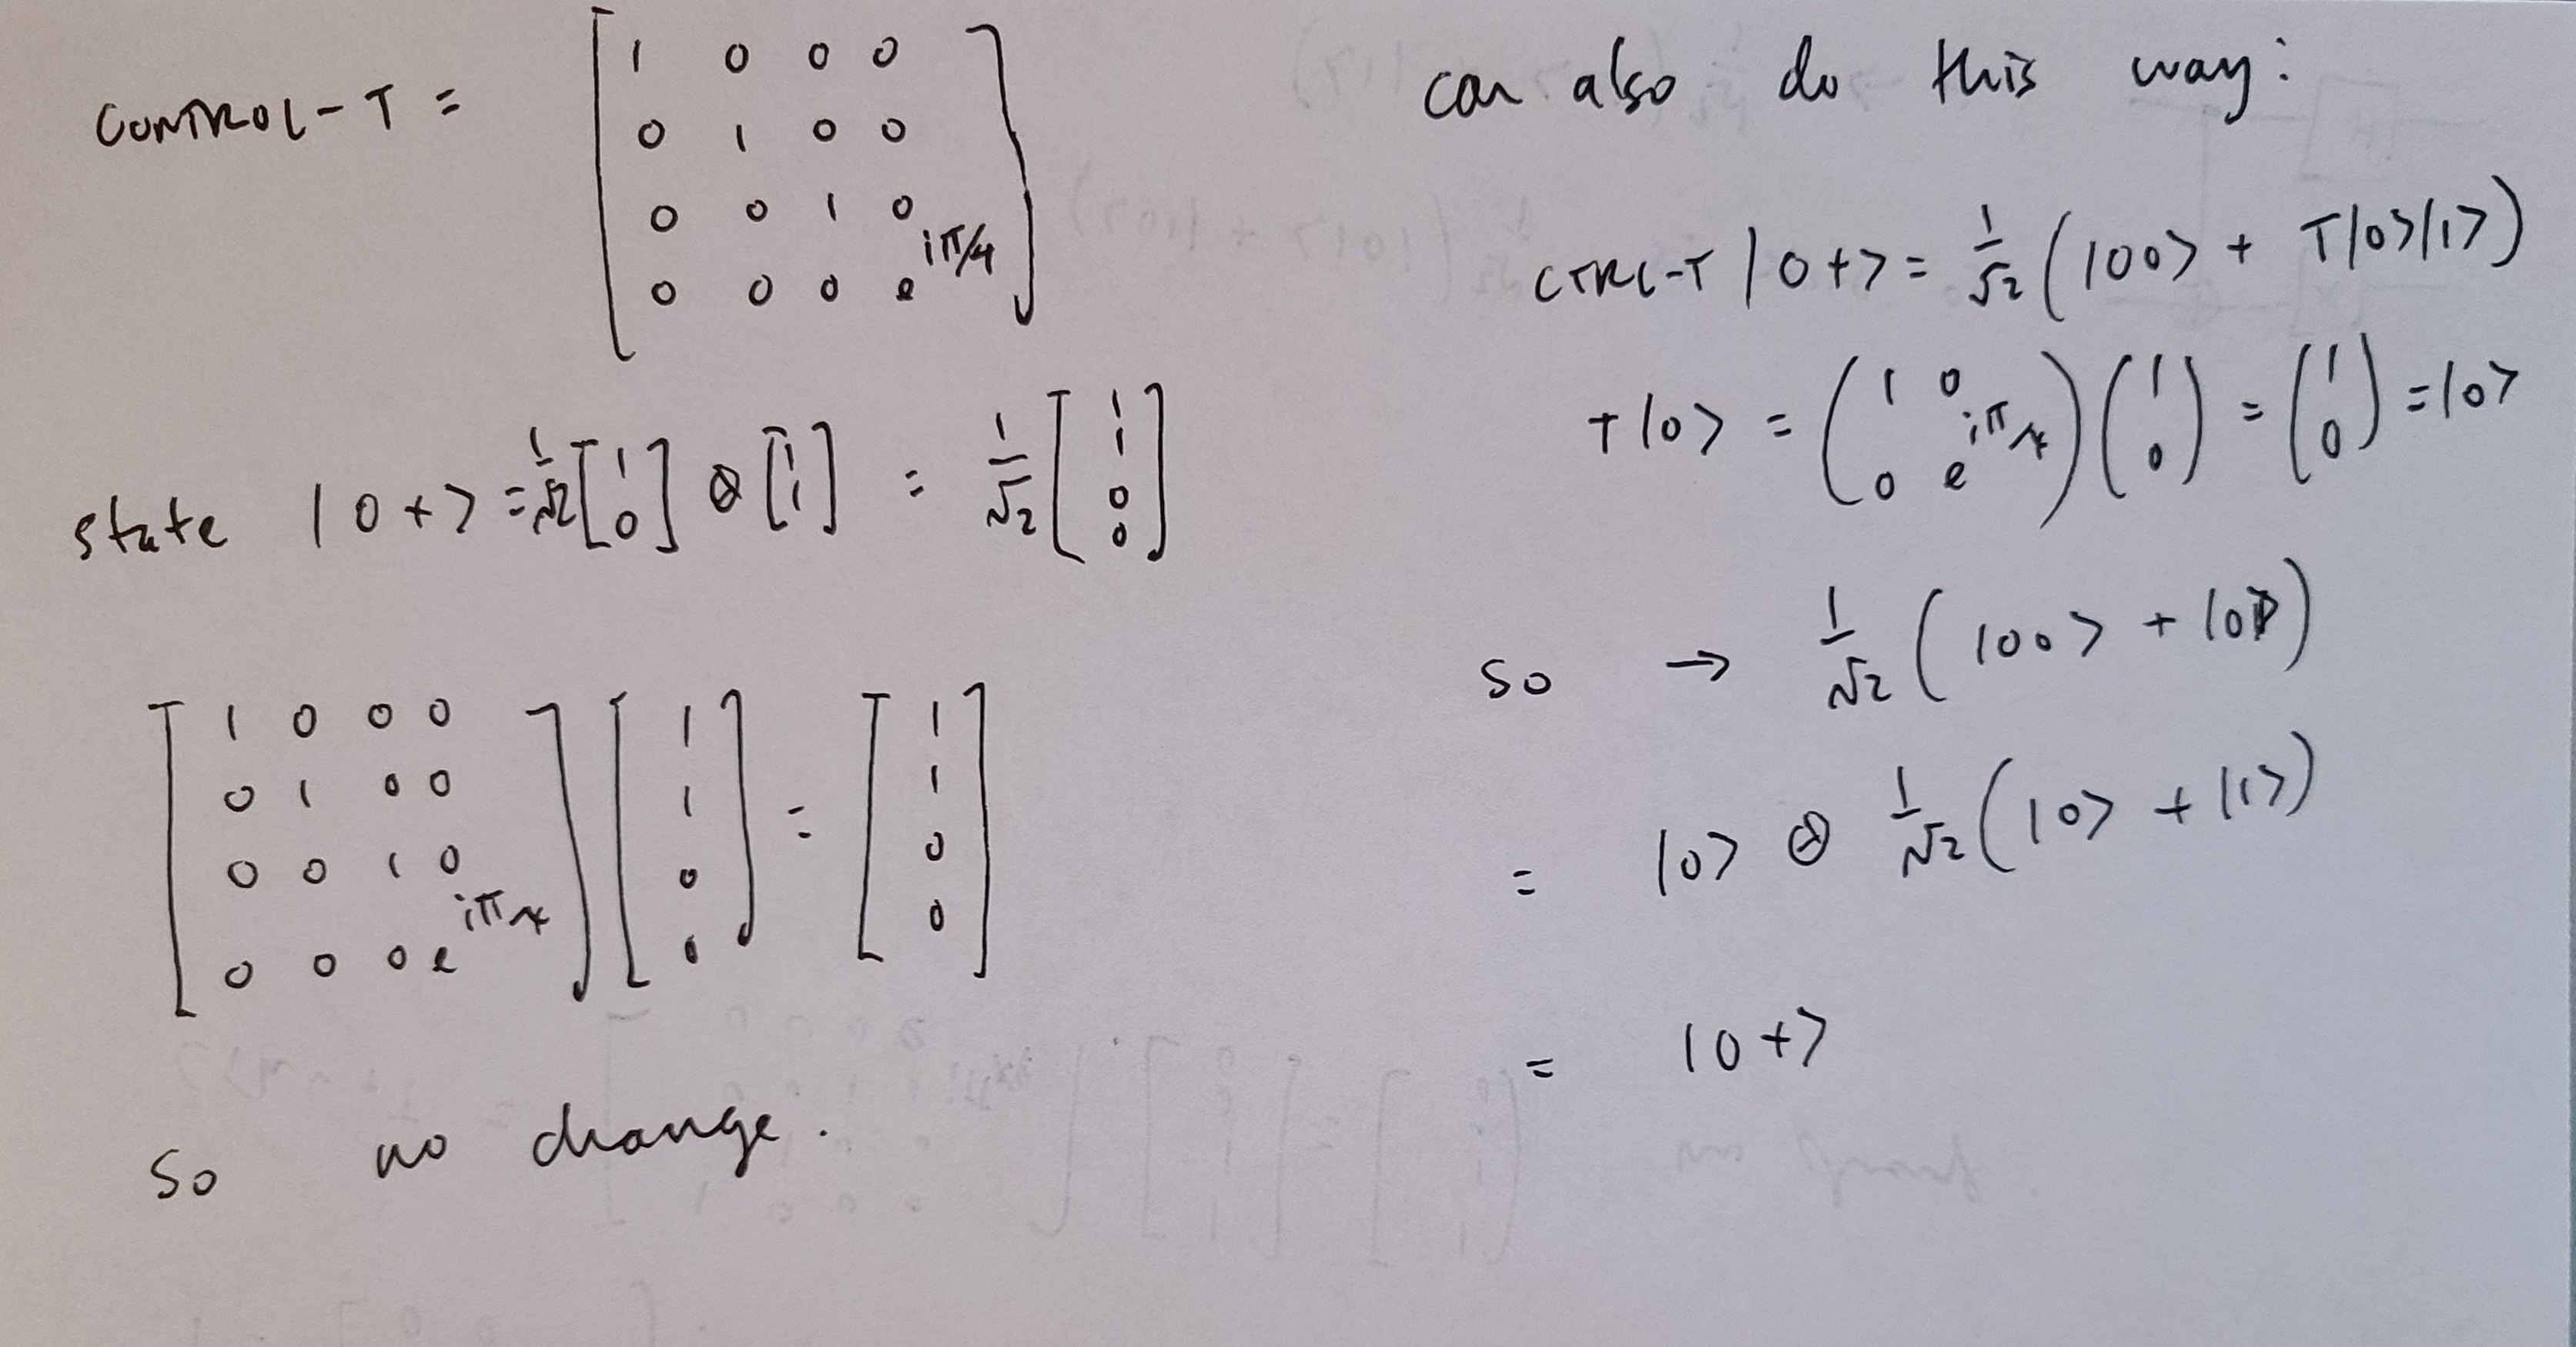 CONTROL-T = [1 0 0 0
0 1 0 0
0 0 1 0
0 0 0 e^{iπ/4}]
state |0+> = 1/√2 [1 0] ⊗ [1 1] = 1/√2 [1 1 0 0]
[1 0 0 0
0 1 0 0
0 0 1 0
0 0 0 e^{iπ/4}] [1 1 0 0] = [1 1 0 0]
So no change.
can also do this way:
CTRL-T |0+> = 1/√2 (|00> + T|0>|1>)
T|0> = (1 0
0 e^{iπ/4}) (1 0) = (1 0) = |0>
so → 1/√2 (|00> + |01>)
= |0> ⊗ 1/√2 (|0> + |1>)
= |0+>